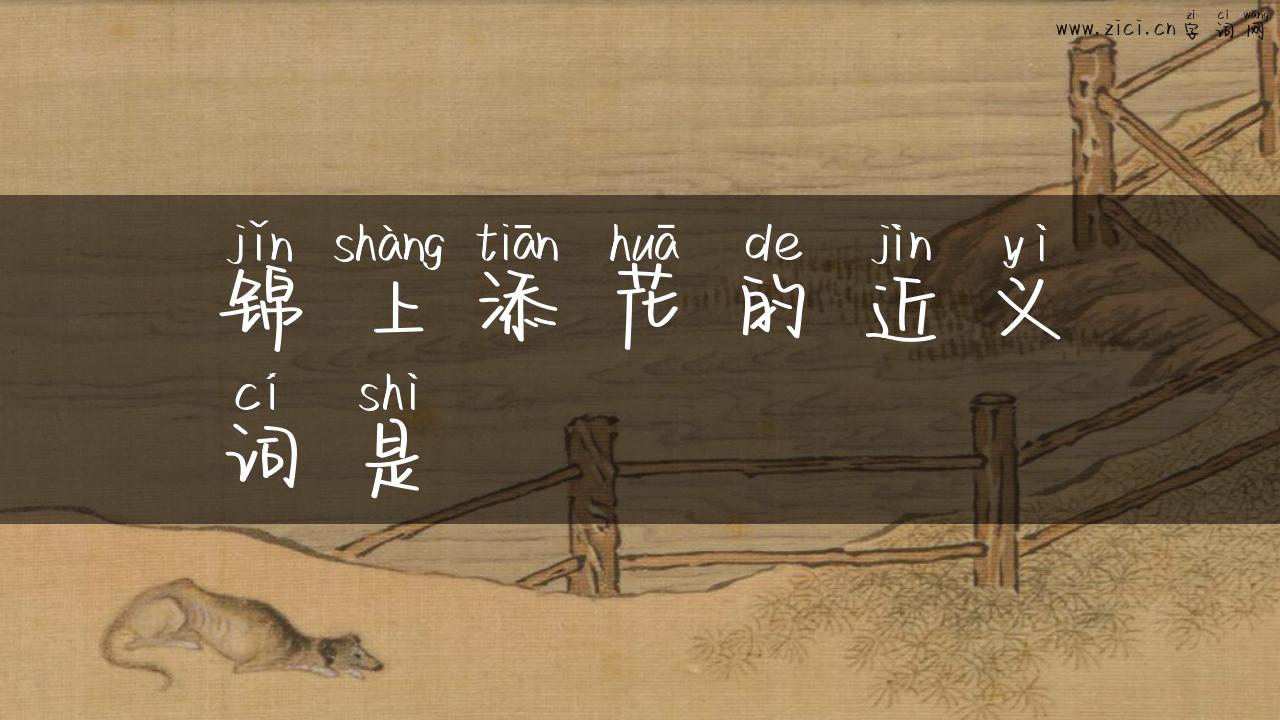 zì cí wǎng
www.zici.cn 字词网
jǐn shàng tiān huā de jìn yì
锦上添花的近义
cí shì
词是